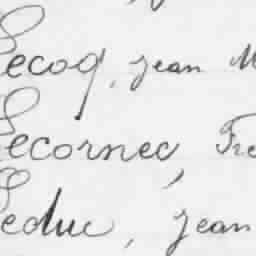 Lecoq, Jean M
Lecornec, Fre
Leduc, Jean